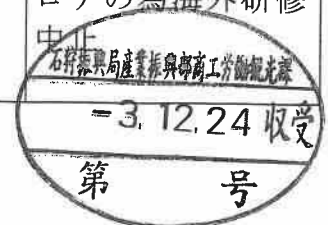 ロナの為海外研修
中止
石狩振興局産業振興部商工労働観光課
-3.12.24 収受
第 号